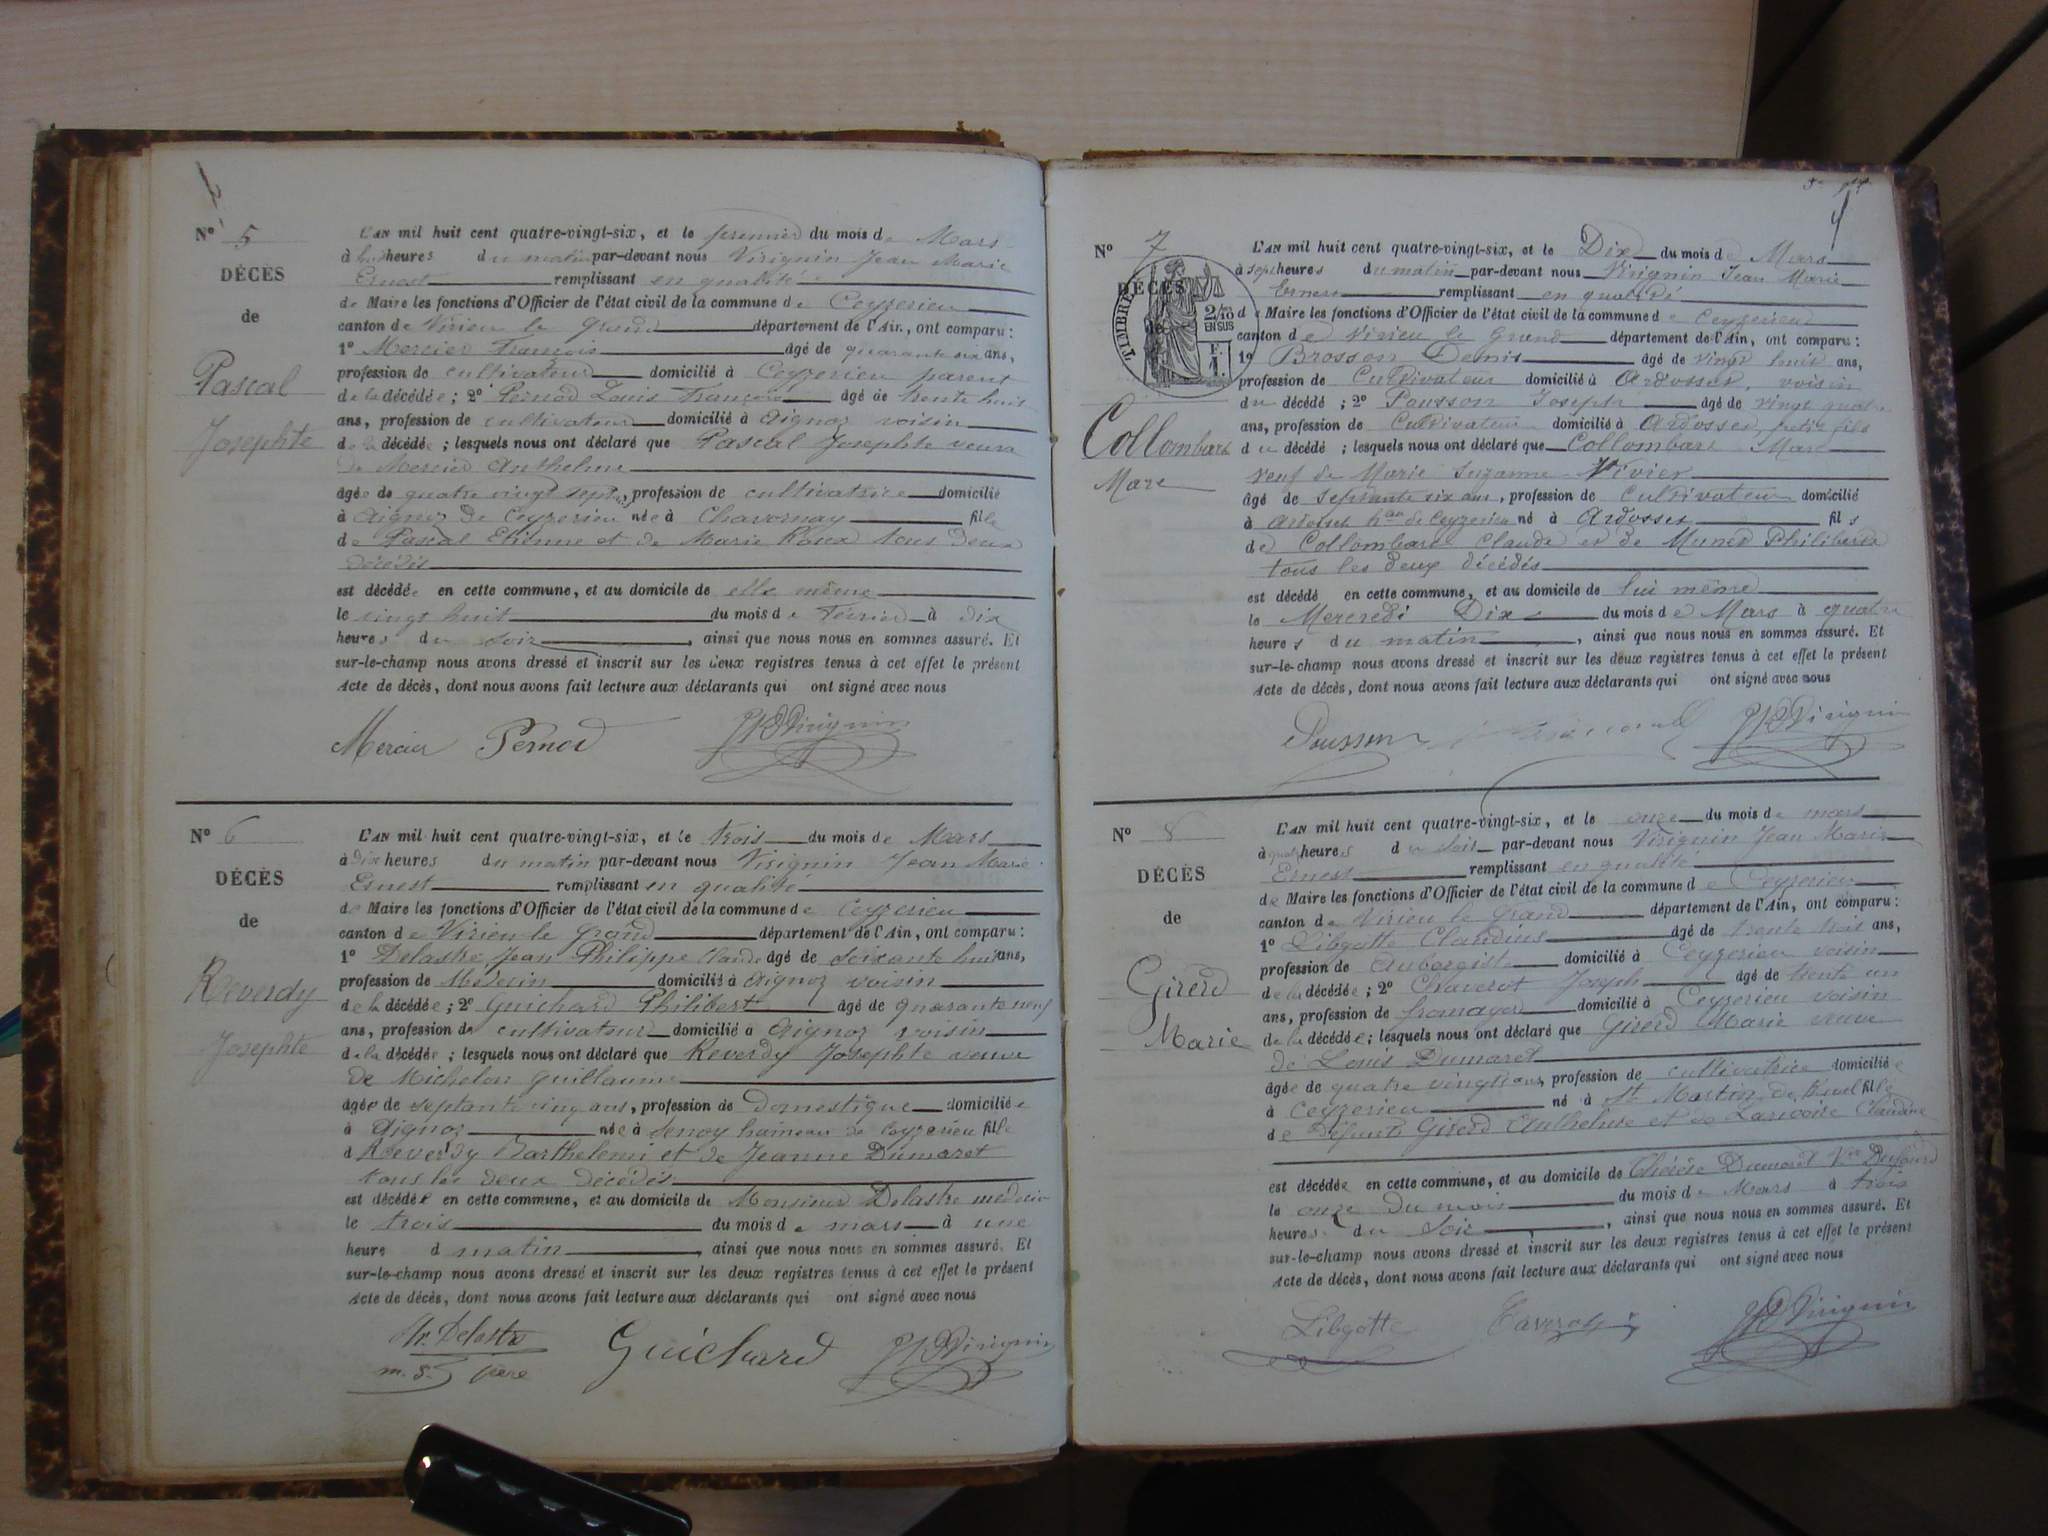 N° 5
DÉCÈS
de
Pascal
Josephte
L'AN mil huit cent quatre-vingt-six, et le premier du mois de Mars
à huit heures du matin par-devant nous Virignin Jean Marie
Ernest remplissant en qualité
de Maire les fonctions d'Officier de l'état civil de la commune de Ceyzerieu
canton de Virieu le Grand département de l'Ain, ont comparu :
1° Mercier François âgé de quarante six ans,
profession de cultivateur domicilié à Ceyzerieu parent
de la décédée ; 2° Pernod Louis François âgé de trente huit
ans, profession de cultivateur domicilié à Aignoz voisin
de la décédée ; lesquels nous ont déclaré que Pascal Josephte veuve
de Mercier Anthelme
âgée de quatre vingt sept ans, profession de cultivatrice domicilié
à Aignoz de Ceyzerieu née à Chavornay fille
de Pascal Etienne et de Marie Roux tous deux
décédés
est décédée en cette commune, et au domicile de elle même
le vingt huit du mois de Février à dix
heures du soir, ainsi que nous nous en sommes assuré. Et
sur-le-champ nous avons dressé et inscrit sur les deux registres tenus à cet effet le présent
Acte de décès, dont nous avons fait lecture aux déclarants qui ont signé avec nous
Mercier Pernod Virignin
N° 6
DÉCÈS
de
Reverdy
Josephte
L'AN mil huit cent quatre-vingt-six, et le trois du mois de Mars
à dix heures du matin par-devant nous Virignin Jean Marie
Ernest remplissant en qualité
de Maire les fonctions d'Officier de l'état civil de la commune de Ceyzerieu
canton de Virieu-le-Grand département de l'Ain, ont comparu :
1° Delastre Jean Philippe Claude âgé de soixante huit ans,
profession de Médecin domicilié à Aignoz voisin
de la décédée ; 2° Guichard Philibert âgé de quarante neuf
ans, profession de cultivateur domicilié à Aignoz voisin
de la décédée ; lesquels nous ont déclaré que Reverdy Josephte veuve
de Michelon Guillaume
âgée de septante cinq ans, profession de Domestique domiciliée
à Aignoz née à Senoy hameau de Ceyzerieu fille
d Reverdy Barthelemi et de Jeanne Dumaret
tous les deux décédés
est décédée en cette commune, et au domicile de Monsieur Delastre médecin
le trois du mois de mars à une
heure d matin, ainsi que nous nous en sommes assuré. Et
sur-le-champ nous avons dressé et inscrit sur les deux registres tenus à cet effet le présent
Acte de décès, dont nous avons fait lecture aux déclarants qui ont signé avec nous
Delastre Guichard Virignin
père
N° 7
DÉCÈS
TIMBRE
2/10
EN SUS
F.
1.
Collombart
Marc
L'AN mil huit cent quatre-vingt-six, et le Dix du mois de Mars
à sept heures du matin par-devant nous Virignin Jean Marie
Ernest remplissant en qualité
de Maire les fonctions d'Officier de l'état civil de la commune de Ceyzerieu
canton de Virieu le Grand département de l'Ain, ont comparu :
1° Brosson Denis âgé de vingt huit ans,
profession de Cultivateur domicilié à Ardosset, voisin
du décédé ; 2° Pousson Joseph âgé de vingt quatre
ans, profession de Cultivateur domicilié à Ardosset, petit fils
du décédé ; lesquels nous ont déclaré que Collombart Marc
veuf de Marie Suzanne Vivier
âgé de septante six ans, profession de Cultivateur domicilié
à Ardosset hau de Ceyzerieu né à Ardosset fils
de Collombart Claude et de Munet Philiberte
tous les deux décédés
est décédé en cette commune, et au domicile de lui même
le Mercredi Dix du mois de Mars à quatre
heures du matin, ainsi que nous nous en sommes assuré. Et
sur-le-champ nous avons dressé et inscrit sur les deux registres tenus à cet effet le présent
Acte de décès, dont nous avons fait lecture aux déclarants qui ont signé avec nous
Pousson Virignin
N° 8
DÉCÈS
de
Girerd
Marie
L'AN mil huit cent quatre-vingt-six, et le onze du mois de mars
à quatre heures du soir par-devant nous Virignin Jean Marie
Ernest remplissant en qualité
de Maire les fonctions d'Officier de l'état civil de la commune de Ceyzerieu
canton de Virieu le Grand département de l'Ain, ont comparu :
1° Libgotte Claudius âgé de trente trois ans,
profession de Aubergiste domicilié à Ceyzerieu voisin
de la décédée ; 2° Joseph âgé de trente un
ans, profession de fromager domicilié à Ceyzerieu voisin
de la décédée ; lesquels nous ont déclaré que Girerd Marie veuve
de Louis Dumaret
âgée de quatre vingt ans, profession de cultivatrice domiciliée
à Ceyzerieu né à St Martin de fille
de défunts Girerd Anthelme et de Larivoire Claudine
est décédée en cette commune, et au domicile de Thérèse Dumaret Vve
le onze du mois du mois de Mars à trois
heures du soir, ainsi que nous nous en sommes assuré. Et
sur-le-champ nous avons dressé et inscrit sur les deux registres tenus à cet effet le présent
Acte de décès, dont nous avons fait lecture aux déclarants qui ont signé avec nous
Libgotte Virignin